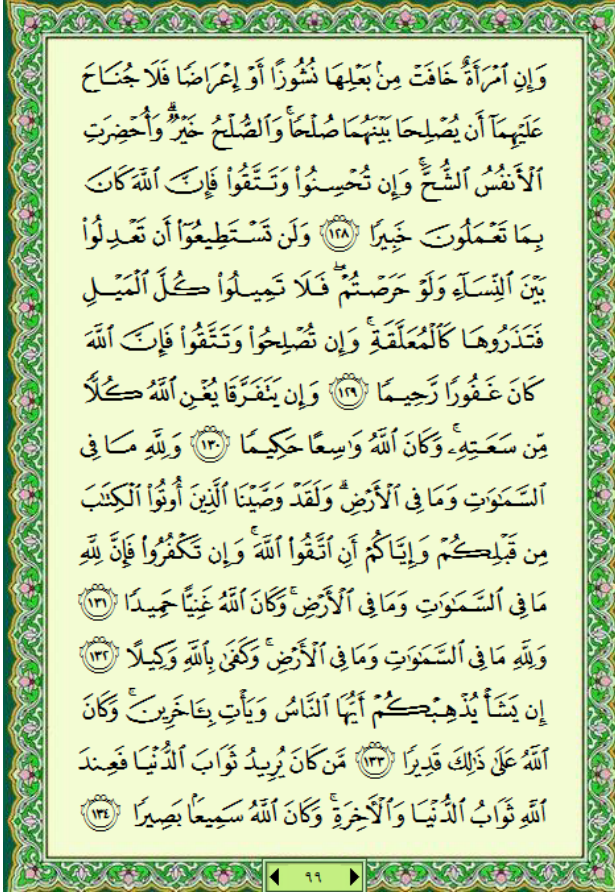 وَإِنِ ٱمْرَأَةٌ خَافَتْ مِنۢ بَعْلِهَا نُشُوزًا أَوْ إِعْرَاضًا فَلَا جُنَاحَ
عَلَيْهِمَآ أَن يُصْلِحَا بَيْنَهُمَا صُلْحًا ۚ وَٱلصُّلْحُ خَيْرٌ ۗ وَأُحْضِرَتِ
ٱلْأَنفُسُ ٱلشُّحَّ ۚ وَإِن تُحْسِنُوا۟ وَتَتَّقُوا۟ فَإِنَّ ٱللَّهَ كَانَ
بِمَا تَعْمَلُونَ خَبِيرًا ١٢٨ وَلَن تَسْتَطِيعُوٓا۟ أَن تَعْدِلُوا۟
بَيْنَ ٱلنِّسَآءِ وَلَوْ حَرَصْتُمْ ۖ فَلَا تَمِيلُوا۟ كُلَّ ٱلْمَيْلِ
فَتَذَرُوهَا كَٱلْمُعَلَّقَةِ ۚ وَإِن تُصْلِحُوا۟ وَتَتَّقُوا۟ فَإِنَّ ٱللَّهَ
كَانَ غَفُورًا رَّحِيمًا ١٢٩ وَإِن يَتَفَرَّقَا يُغْنِ ٱللَّهُ كُلًّا
مِّن سَعَتِهِۦ ۚ وَكَانَ ٱللَّهُ وَٰسِعًا حَكِيمًا ١٣٠ وَلِلَّهِ مَا فِى
ٱلسَّمَٰوَٰتِ وَمَا فِى ٱلْأَرْضِ ۗ وَلَقَدْ وَصَّيْنَا ٱلَّذِينَ أُوتُوا۟ ٱلْكِتَٰبَ
مِن قَبْلِكُمْ وَإِيَّاكُمْ أَنِ ٱتَّقُوا۟ ٱللَّهَ ۚ وَإِن تَكْفُرُوا۟ فَإِنَّ لِلَّهِ
مَا فِى ٱلسَّمَٰوَٰتِ وَمَا فِى ٱلْأَرْضِ ۚ وَكَانَ ٱللَّهُ غَنِيًّا حَمِيدًا ١٣١
وَلِلَّهِ مَا فِى ٱلسَّمَٰوَٰتِ وَمَا فِى ٱلْأَرْضِ ۚ وَكَفَىٰ بِٱللَّهِ وَكِيلًا ١٣٢
إِن يَشَأْ يُذْهِبْكُمْ أَيُّهَا ٱلنَّاسُ وَيَأْتِ بِـَٔاخَرِينَ ۚ وَكَانَ
ٱللَّهُ عَلَىٰ ذَٰلِكَ قَدِيرًا ١٣٣ مَّن كَانَ يُرِيدُ ثَوَابَ ٱلدُّنْيَا فَعِندَ
ٱللَّهِ ثَوَابُ ٱلدُّنْيَا وَٱلْءَاخِرَةِ ۚ وَكَانَ ٱللَّهُ سَمِيعًۢا بَصِيرًا ١٣٤
٩٩